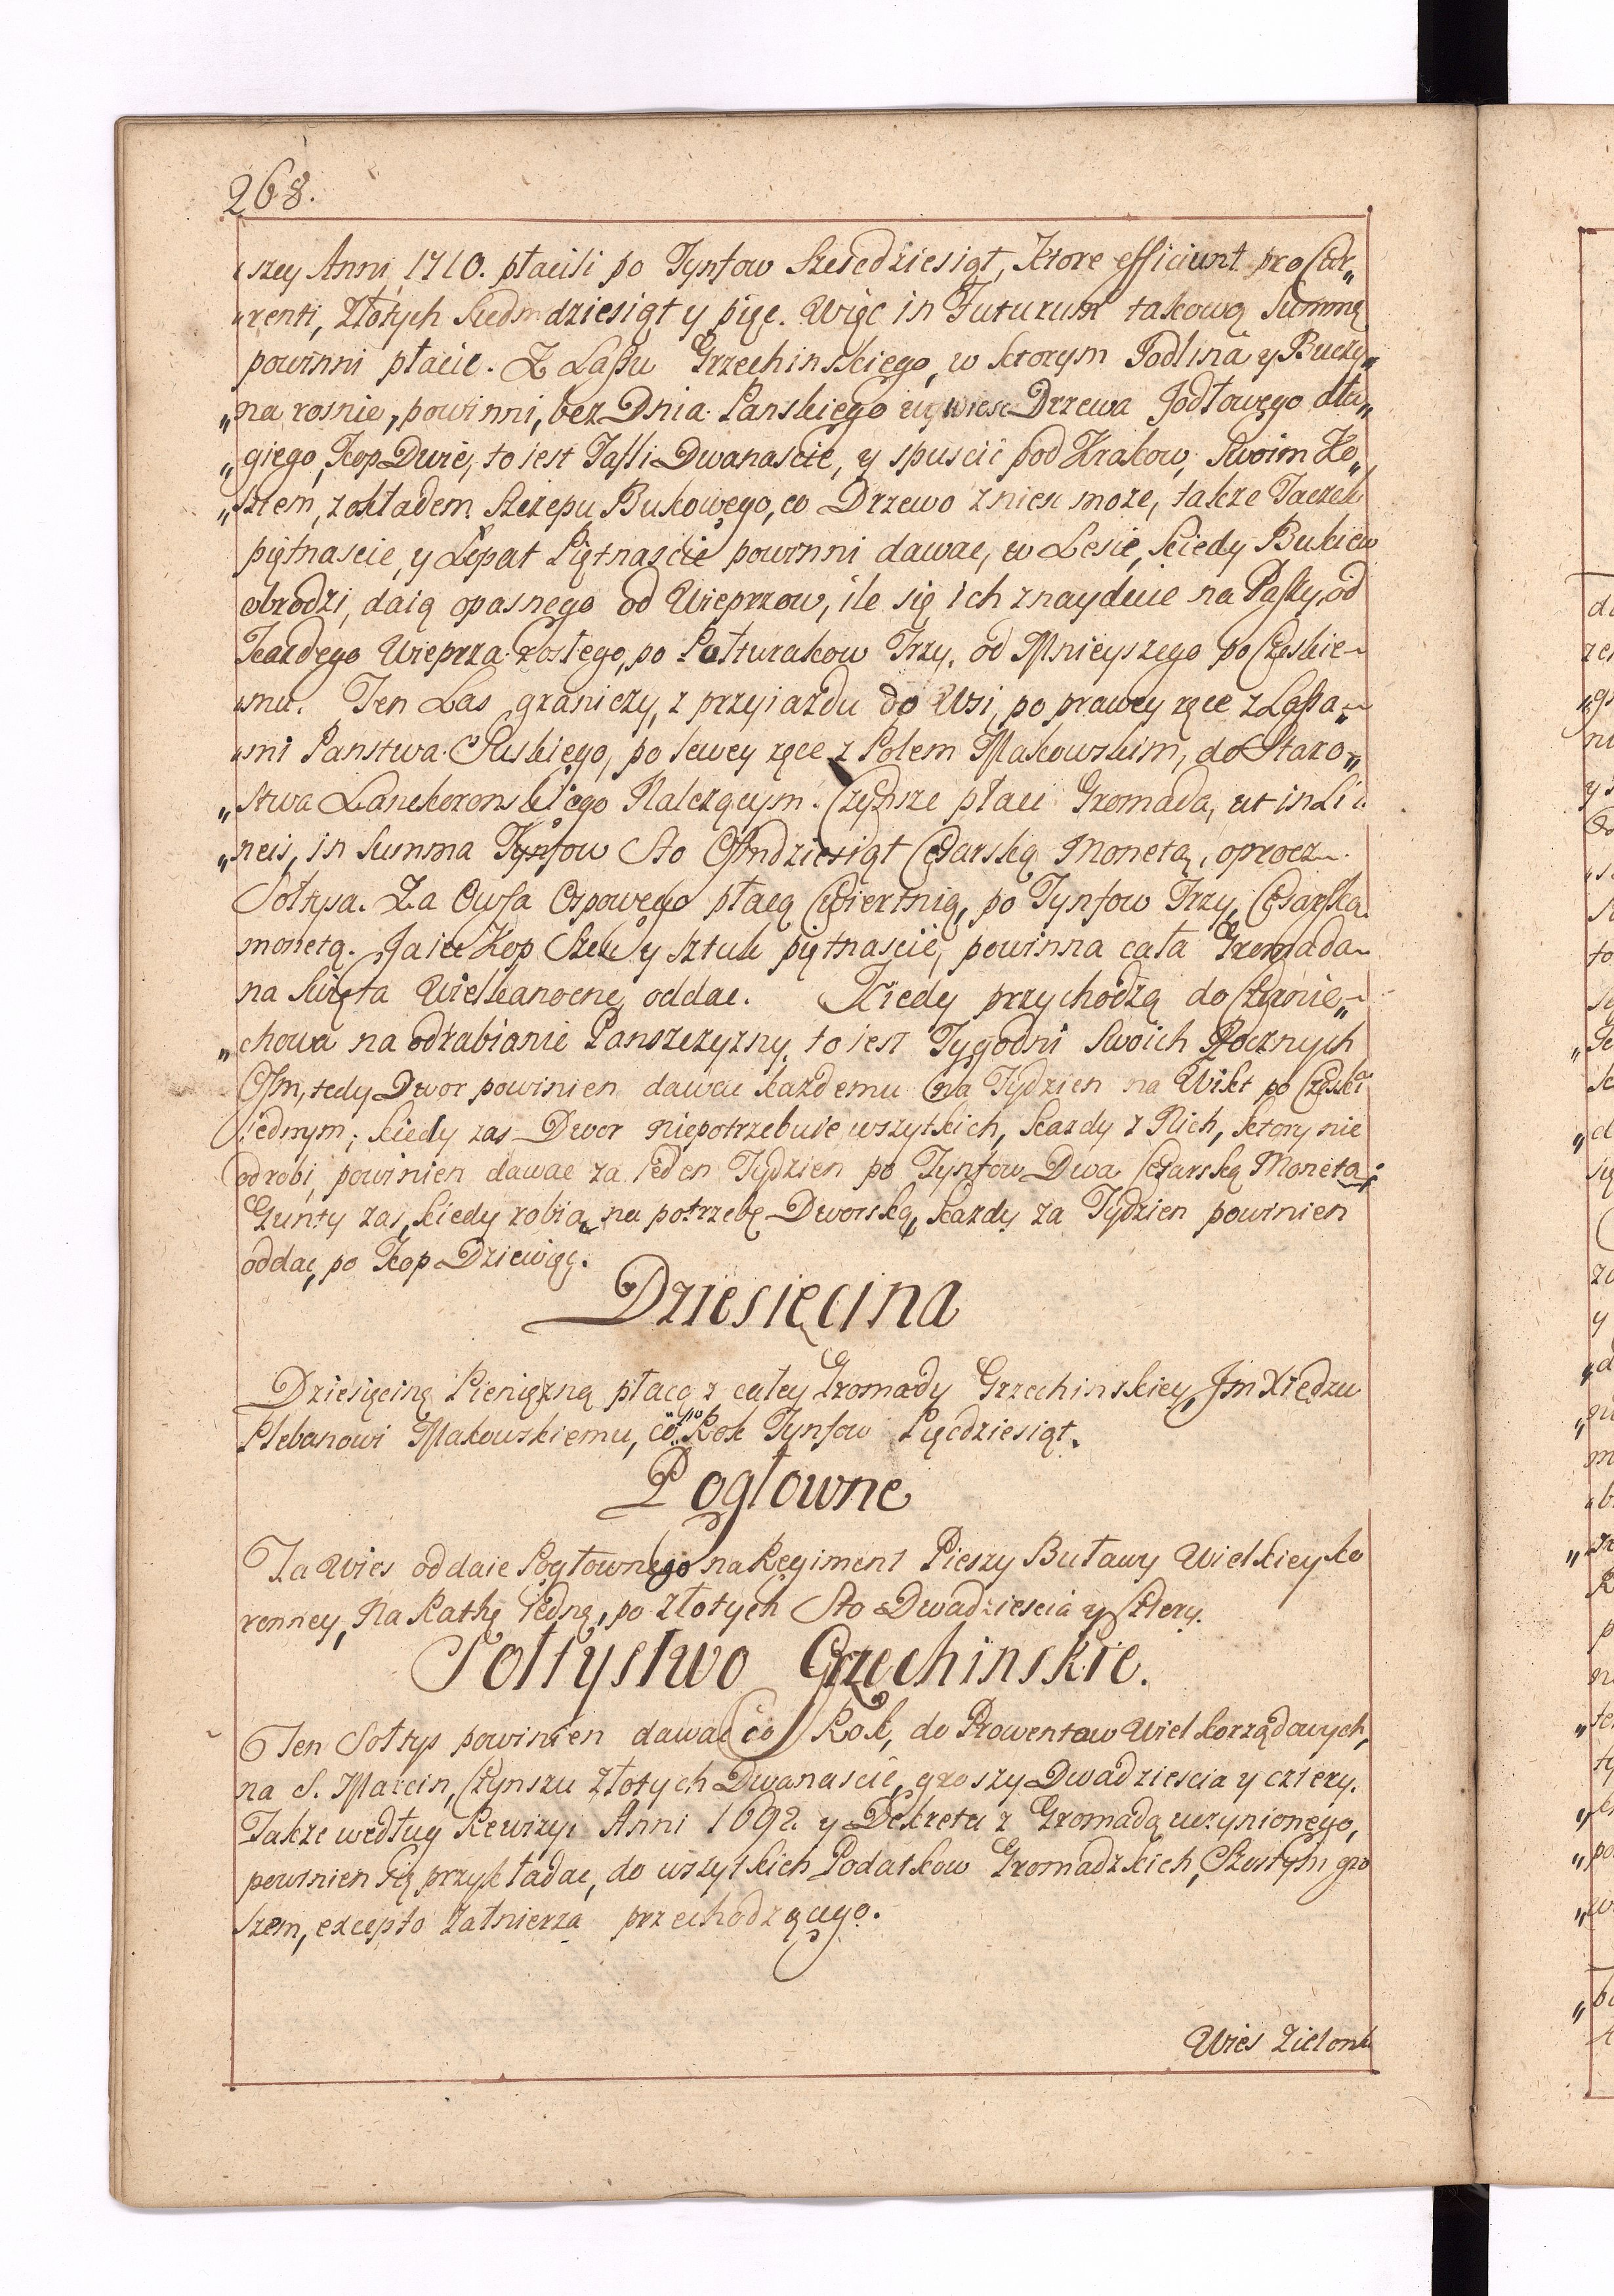 268.
„szey Anni, 1710. płacili po Tynfow Szescdziesiąt, ktore efficiunt pro Cur„
„renti, Złotych Siedmdziesiąt y pięc. Więc in Futurum takową Summę
powinni płacic. Z Lassu Grzechinskiego, w ktorym Jodlina y Buczy„
„na rosnie, powinni, bez Dnia Panskiego Drzewa Jodłowego dłu„
„giego, kop Dwie, to iest Taffli Dwanascie, y spuscic pod Krakow, Swoim Ko„
„sztem, z okładem Szczepu Bukowego, co Drzewo zniesc moze, takze Taczek
piętnascie, y Łopat Piętnascie powinni dawac, w Lesie, kiedy Bukiew
obrodzi, daią opasnego od Wieprzow, ile się ich znayduie na Passzy, od
Kazdego Wieprza rosłego, po Połturakow Trzy, od Mnieyszego po Czeskie„
„mu. Ten Las graniczy, z przyiazdu do Wsi, po prawey ręce z Lassa„
„mi Panstwa Suskiego, po lewey ręce z Polem Makowskim, do Staro„
„stwa Lanckoronskiego Nalezącym. Czynsze płaci Gromada, ut in Li„
„neis, in Summa Tynfow Sto Osmdziesiąt Cesarską Monetą, oprocz
Sołtysa. Za Owsa Ospowego płacą Cwiertnią, po Tynfow Trzy, Cesarską
monetą. Jaiec Kop Szesc y sztuk piętnascie, powinna cała Gromada
na Swięta Wielkanocne oddac. Kiedy przychodzą do Czernie„
„chowa na odrabianie Panszczyzny, to iest Tygodni Swoich Rocznych
Osm, tedy Dwor powinien dawac kazdemu na Tydzien na Wikt po Czeski
iednym; kiedy zas Dwor niepotrzebuie wszytkich, kazdy z Nich, ktory nie
odrobi, powinien dawac za ieden Tydzien po Tynfow Dwa Cesarską Monetą;
Gunty zas, kiedy robią na potrzebę Dworską, kazdy za Tydzien powinien
oddac, po Kop Dziewięc.
Dziesięcina
Dziesięcinę Pieniężną płacą z całey Gromady Grzechinskiey, Jm Xiedzu
Plebanowi Makowskiemu, co Rok Tynfow Pięcdziesiąt.
Pogłowne
Ta Wies oddaie Pogłownego na Regiment Pieszy Buławy Wielkiey ko
ronney, Na Rathę iedną, po Złotych Sto Dwadziescia y Cztery.
Sołtystwo Grzechinskie.
Ten Sołtys powinien dawac co Rok, do Prowentow Wielkorządowych,
na S. Marcin, Czynszu Złotych Dwanascie, groszy Dwadziescia y cztery.
Takze według Rewizyi Anni 1692. y Dekretu z Gromadą uczynionego,
powinien się przykładac, do wszytkich Podatkow Gromadzkich, Szostym gro
szem, excepto Załnierza przechodzącego.
Wies Zielonk